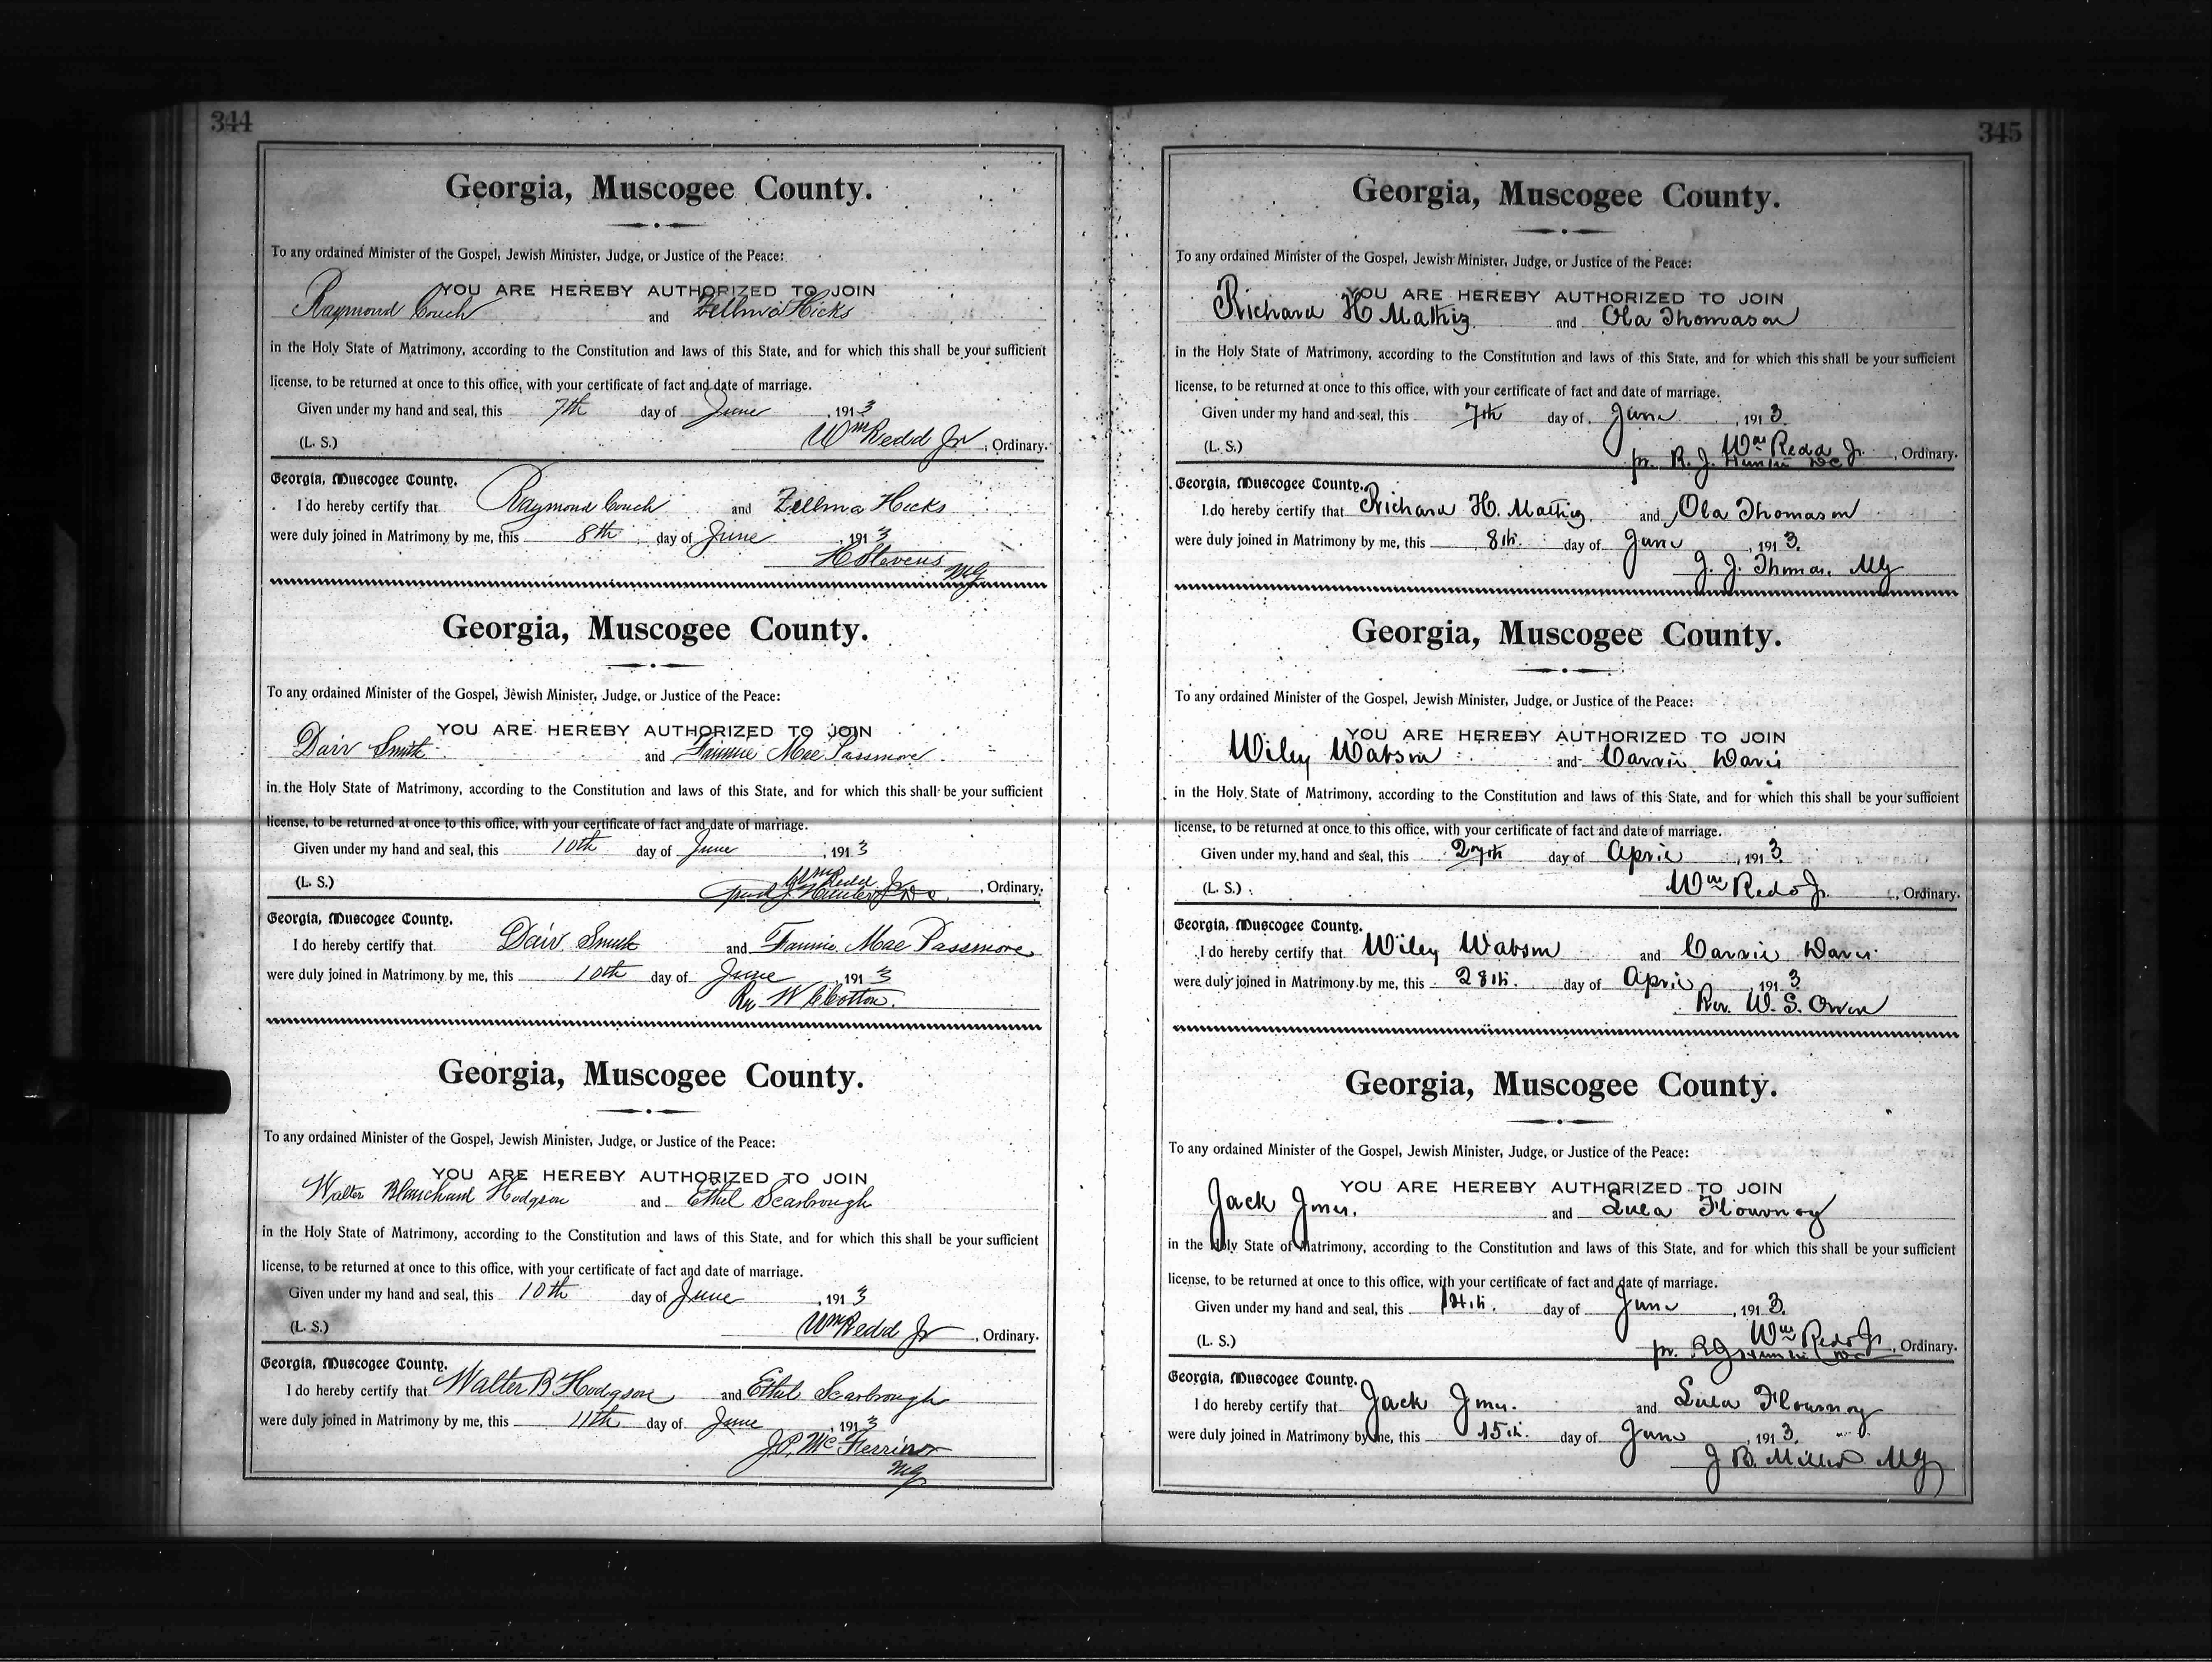 344
Georgia, Muscogee County.
To any ordained Minister of the Gospel, Jewish Minister, Judge, or Justice of the Peace:
YOU ARE HEREBY AUTHORIZED TO JOIN
Raymond Couch and Zellma Hicks
in the Holy State of Matrimony, according to the Constitution and laws of this State, and for which this shall be your sufficient
license, to be returned at once to this office, with your certificate of fact and date of marriage.
Given under my hand and seal, this 7th day of June, 1913
(L. S.) Wm Redd Jr, Ordinary.
Georgia, Muscogee County.
I do hereby certify that Raymond Couch and Zellma Hicks
were duly joined in Matrimony by me, this 8th day of June, 1913
H Stevens MG
Georgia, Muscogee County.
To any ordained Minister of the Gospel, Jewish Minister, Judge, or Justice of the Peace:
YOU ARE HEREBY AUTHORIZED TO JOIN
Smith and Fannie Mae Passmore
in the Holy State of Matrimony, according to the Constitution and laws of this State, and for which this shall be your sufficient
license, to be returned at once to this office, with your certificate of fact and date of marriage.
Given under my hand and seal, this 10th day of June, 1913
Wm Redd Jr
(L. S.) J. Hunter DC, Ordinary.
Georgia, Muscogee County.
I do hereby certify that Smith and Fannie Mae Passmore
were duly joined in Matrimony by me, this 10th day of June, 1913
Rev W C Cotton.
Georgia, Muscogee County.
To any ordained Minister of the Gospel, Jewish Minister, Judge, or Justice of the Peace:
YOU ARE HEREBY AUTHORIZED TO JOIN
Walter Blanchard Hodgson and Ethel Scarbrough
in the Holy State of Matrimony, according to the Constitution and laws of this State, and for which this shall be your sufficient
license, to be returned at once to this office, with your certificate of fact and date of marriage.
Given under my hand and seal, this 10th day of June, 1913
(L. S.) Wm Redd Jr, Ordinary.
Georgia, Muscogee County.
I do hereby certify that Walter B Hodgson and Ethel Scarbrough
were duly joined in Matrimony by me, this 11th day of June, 1913
J. P. McFerrin
MG
345
Georgia, Muscogee County.
To any ordained Minister of the Gospel, Jewish Minister, Judge, or Justice of the Peace:
YOU ARE HEREBY AUTHORIZED TO JOIN
Richard H Mathis and Ola Thomason
in the Holy State of Matrimony, according to the Constitution and laws of this State, and for which this shall be your sufficient
license, to be returned at once to this office, with your certificate of fact and date of marriage.
Given under my hand and seal, this 7th day of June, 1913.
(L. S.) Wm Redd Jr., Ordinary.
pr. R. J. Hunter DC
Georgia, Muscogee County.
I do hereby certify that Richard H. Mathis and Ola Thomason
were duly joined in Matrimony by me, this 8th. day of June, 1913.
J. J. Thomas, MG
Georgia, Muscogee County.
To any ordained Minister of the Gospel, Jewish Minister, Judge, or Justice of the Peace:
YOU ARE HEREBY AUTHORIZED TO JOIN
Wiley Watson and Carrie Davis
in the Holy State of Matrimony, according to the Constitution and laws of this State, and for which this shall be your sufficient
license, to be returned at once to this office, with your certificate of fact and date of marriage.
Given under my hand and seal, this 27th day of April, 1913.
(L. S.) Wm Redd Jr., Ordinary.
Georgia, Muscogee County.
I do hereby certify that Wiley Watson and Carrie Davis
were duly joined in Matrimony by me, this 28th. day of April, 1913
Rev. W. S. Owen
Georgia, Muscogee County.
To any ordained Minister of the Gospel, Jewish Minister, Judge, or Justice of the Peace:
YOU ARE HEREBY AUTHORIZED TO JOIN
Jack Jones. and Lula Flournoy
in the Holy State of Matrimony, according to the Constitution and laws of this State, and for which this shall be your sufficient
license, to be returned at once to this office, with your certificate of fact and date of marriage.
Given under my hand and seal, this 14th. day of June, 1913.
(L. S.) Wm Redd Jr., Ordinary.
pr. R J Hunter DC
Georgia, Muscogee County.
I do hereby certify that Jack Jones. and Lula Flournoy
were duly joined in Matrimony by me, this 15th. day of June, 1913.
J B. Miller MG